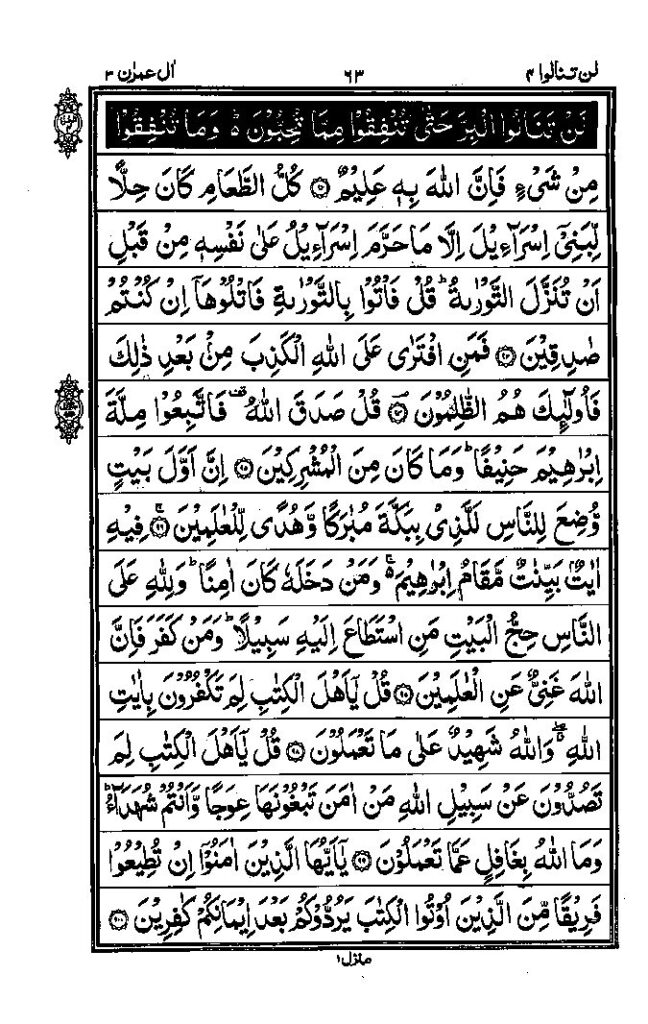 لن تنالوا ٤ ٦٣ اٰل عمرٰن ٣
لَنْ تَنَالُوا الْبِرَّ حَتّٰى تُنْفِقُوْا مِمَّا تُحِبُّوْنَ ؕ وَمَا تُنْفِقُوْا
مِنْ شَیْءٍ فَاِنَّ اللّٰهَ بِهٖ عَلِیْمٌ ﴿۹۲﴾ كُلُّ الطَّعَامِ كَانَ حِلًّا
لِّبَنِیْۤ اِسْرَآءِیْلَ اِلَّا مَا حَرَّمَ اِسْرَآءِیْلُ عَلٰى نَفْسِهٖ مِنْ قَبْلِ
اَنْ تُنَزَّلَ التَّوْرٰىةُ ؕ قُلْ فَاْتُوْا بِالتَّوْرٰىةِ فَاتْلُوْهَاۤ اِنْ كُنْتُمْ
صٰدِقِیْنَ ﴿۹۳﴾ فَمَنِ افْتَرٰى عَلَى اللّٰهِ الْكَذِبَ مِنْۢ بَعْدِ ذٰلِكَ
فَاُولٰٓىِٕكَ هُمُ الظّٰلِمُوْنَ ﴿۹۴﴾ قُلْ صَدَقَ اللّٰهُ ۫ فَاتَّبِعُوْا مِلَّةَ
اِبْرٰهِیْمَ حَنِیْفًا ؕ وَمَا كَانَ مِنَ الْمُشْرِكِیْنَ ﴿۹۵﴾ اِنَّ اَوَّلَ بَیْتٍ
وُّضِعَ لِلنَّاسِ لَلَّذِیْ بِبَكَّةَ مُبٰرَكًا وَّهُدًی لِّلْعٰلَمِیْنَ ﴿۹۶﴾ۚ فِیْهِ
اٰیٰتٌۢ بَیِّنٰتٌ مَّقَامُ اِبْرٰهِیْمَ ۚ۬ وَمَنْ دَخَلَهٗ كَانَ اٰمِنًا ؕ وَلِلّٰهِ عَلَى
النَّاسِ حِجُّ الْبَیْتِ مَنِ اسْتَطَاعَ اِلَیْهِ سَبِیْلًا ؕ وَمَنْ كَفَرَ فَاِنَّ
اللّٰهَ غَنِیٌّ عَنِ الْعٰلَمِیْنَ ﴿۹۷﴾ قُلْ یٰۤاَهْلَ الْكِتٰبِ لِمَ تَكْفُرُوْنَ بِاٰیٰتِ
اللّٰهِ ۖۗ وَاللّٰهُ شَهِیْدٌ عَلٰى مَا تَعْمَلُوْنَ ﴿۹۸﴾ قُلْ یٰۤاَهْلَ الْكِتٰبِ لِمَ
تَصُدُّوْنَ عَنْ سَبِیْلِ اللّٰهِ مَنْ اٰمَنَ تَبْغُوْنَهَا عِوَجًا وَّاَنْتُمْ شُهَدَآءُ ؕ
وَمَا اللّٰهُ بِغَافِلٍ عَمَّا تَعْمَلُوْنَ ﴿۹۹﴾ یٰۤاَیُّهَا الَّذِیْنَ اٰمَنُوْۤا اِنْ تُطِیْعُوْا
فَرِیْقًا مِّنَ الَّذِیْنَ اُوْتُوا الْكِتٰبَ یَرُدُّوْكُمْ بَعْدَ اِیْمَانِكُمْ كٰفِرِیْنَ ﴿۱۰۰﴾
منزل ١